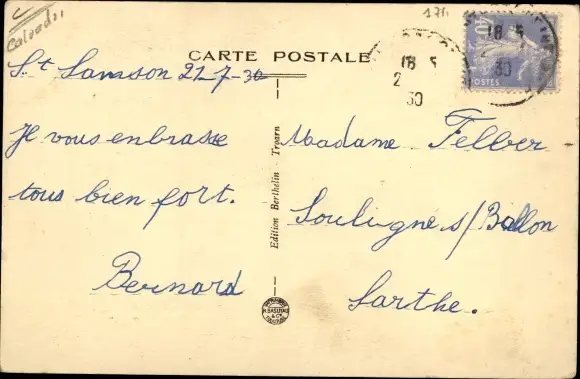 Calvados
CARTE POSTALE
St Samson 21-7-30
Je vous enbrasse
tous bien fort.
Bernard
Edition Berthelin - Troarn
Madame Felber
Souligné s/Ballon
Sarthe.
POSTES
18
2
30